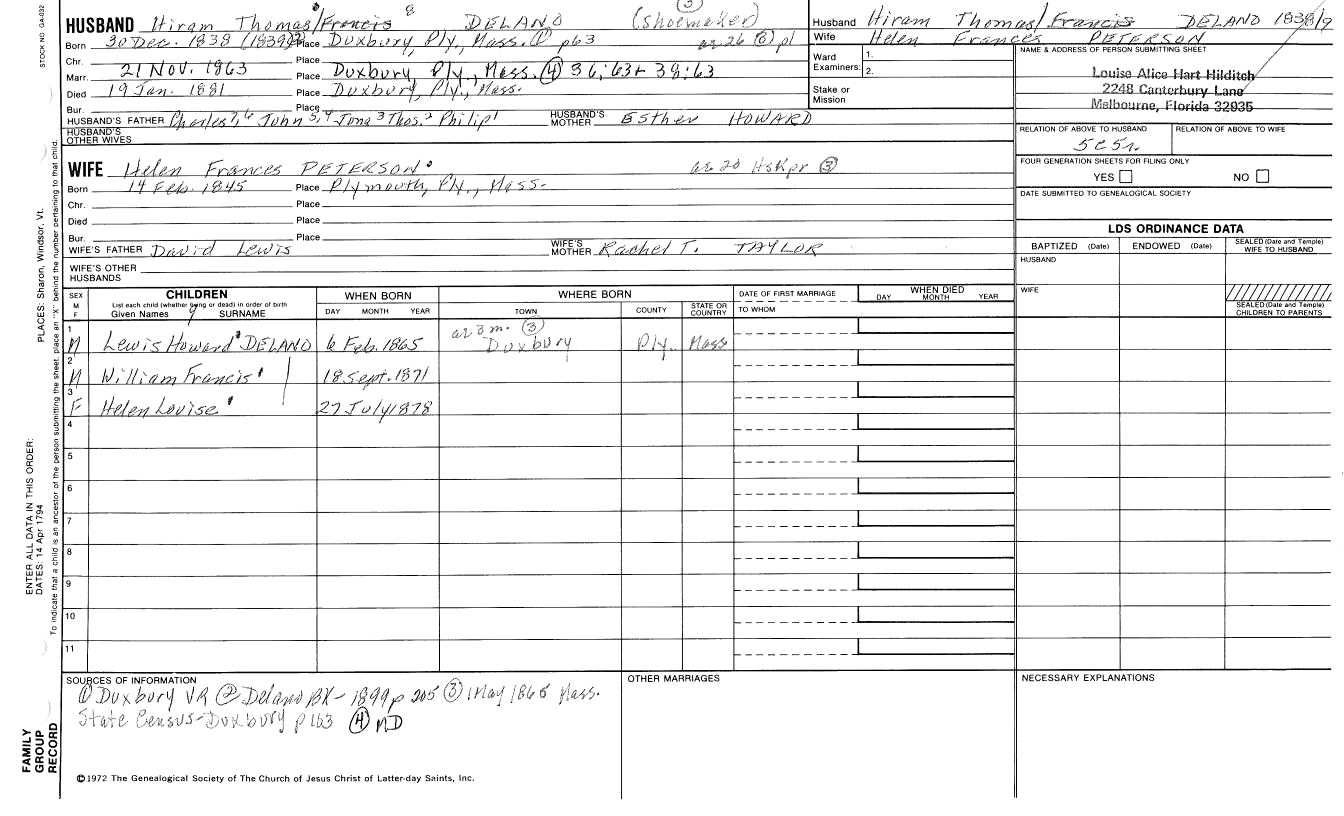 STOCK NO. GA-032
PLACES: Sharon, Windsor, Vt.
ENTER ALL DATA IN THIS ORDER:
DATES: 14 Apr 1794
To indicate that a child is an ancestor of the person submitting the sheet, place an "X" behind the number pertaining to that child.
FAMILY GROUP RECORD
HUSBAND Hiram Thomas/Francis 8 DELANO (shoemaker) (3)
Born 30 Dec. 1838 (1839) (2) Place Duxbury, Ply., Mass. (1) p63 ae 26 (3) p1
Chr. Place
Marr. 21 Nov. 1863 Place Duxbury, Ply., Mass. (4) 36:63 + 38:63
Died 19 Jan. 1881 Place Duxbury, Ply., Mass.
Bur. Place
HUSBAND'S FATHER Charles 7,6 John 5,4 Jona 3 Thos. 2 Philip 1 HUSBAND'S MOTHER Esther HOWARD
HUSBAND'S OTHER WIVES
WIFE Helen Frances PETERSON ae 20 HsKpr (3)
Born 14 Feb. 1845 Place Plymouth, Ply., Mass.
Chr. Place
Died Place
Bur. Place
WIFE'S FATHER David Lewis WIFE'S MOTHER Rachel T. TAYLOR
WIFE'S OTHER HUSBANDS
Husband Hiram Thomas/Francis DELANO 1838/9
Wife Helen Frances PETERSON
Ward Examiners: 1. 2.
Stake or Mission
NAME & ADDRESS OF PERSON SUBMITTING SHEET
Louise Alice Hart Hilditch
2248 Canterbury Lane
Melbourne, Florida 32935
RELATION OF ABOVE TO HUSBAND RELATION OF ABOVE TO WIFE
5c5r.
FOUR GENERATION SHEETS FOR FILING ONLY
YES NO
DATE SUBMITTED TO GENEALOGICAL SOCIETY
LDS ORDINANCE DATA
BAPTIZED (Date) ENDOWED (Date) SEALED (Date and Temple) WIFE TO HUSBAND
HUSBAND
WIFE
SEALED (Date and Temple) CHILDREN TO PARENTS
SEX M F
CHILDREN
List each child (whether living or dead) in order of birth
Given Names SURNAME
WHEN BORN
DAY MONTH YEAR
WHERE BORN
TOWN COUNTY STATE OR COUNTRY
DATE OF FIRST MARRIAGE
TO WHOM
WHEN DIED
DAY MONTH YEAR
1 M Lewis Howard DELANO 6 Feb. 1865 ae 3 m. (3) Duxbury Ply. Mass
2 M William Francis 18 Sept. 1871
3 F Helen Louise 27 July 1878
4
5
6
7
8
9
10
11
SOURCES OF INFORMATION
(1) Duxbury VR (2) Delano BK - 1899 p 205 (3) 1 May 1865 Mass.
State Census - Duxbury p 163 (4) MD
OTHER MARRIAGES
NECESSARY EXPLANATIONS
©1972 The Genealogical Society of The Church of Jesus Christ of Latter-day Saints, Inc.